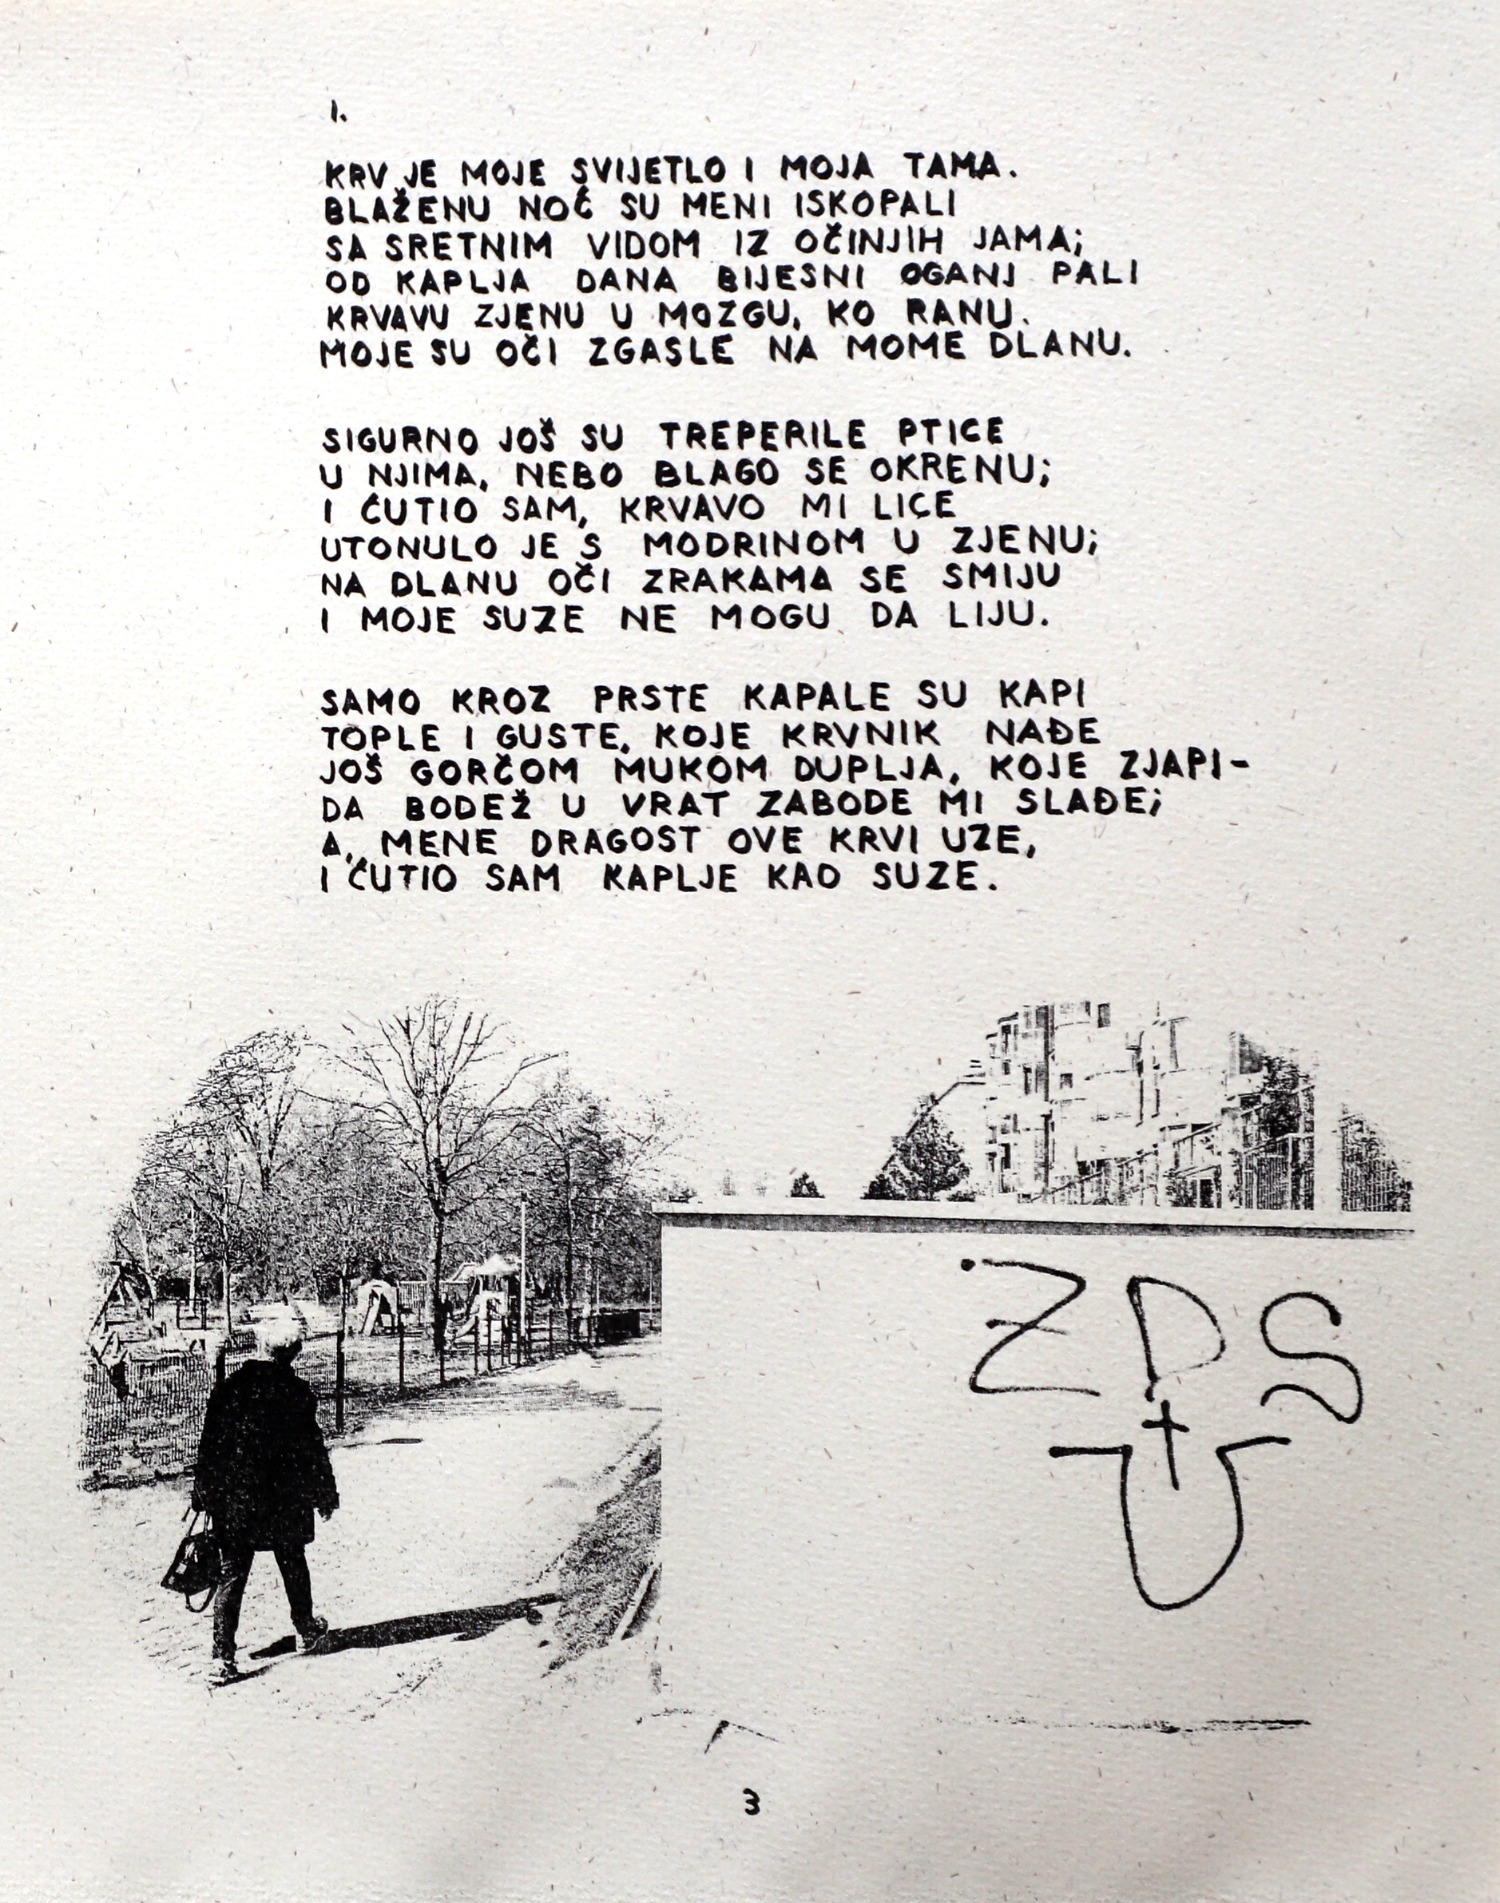 1.
KRV JE MOJE SVIJETLO I MOJA TAMA.
BLAŽENU NOĆ SU MENI ISKOPALI
SA SRETNIM VIDOM IZ OČINJIH JAMA;
OD KAPLJA DANA BIJESNI OGANJ PALI
KRVAVU ZJENU U MOZGU, KO RANU.
MOJE SU OČI ZGASLE NA MOME DLANU.
SIGURNO JOŠ SU TREPERILE PTICE
U NJIMA, NEBO BLAGO SE OKRENU;
I ĆUTIO SAM, KRVAVO MI LICE
UTONULO JE S MODRINOM U ZJENU;
NA DLANU OČI ZRAKAMA SE SMIJU
I MOJE SUZE NE MOGU DA LIJU.
SAMO KROZ PRSTE KAPALE SU KAPI
TOPLE I GUSTE, KOJE KRVNIK NAĐE
JOŠ GORČOM MUKOM DUPLJA, KOJE ZJAPI-
DA BODEŽ U VRAT ZABODE MI SLAĐE;
A, MENE DRAGOST OVE KRVI UZE,
I ĆUTIO SAM KAPLJE KAO SUZE.
ZDS
U
3